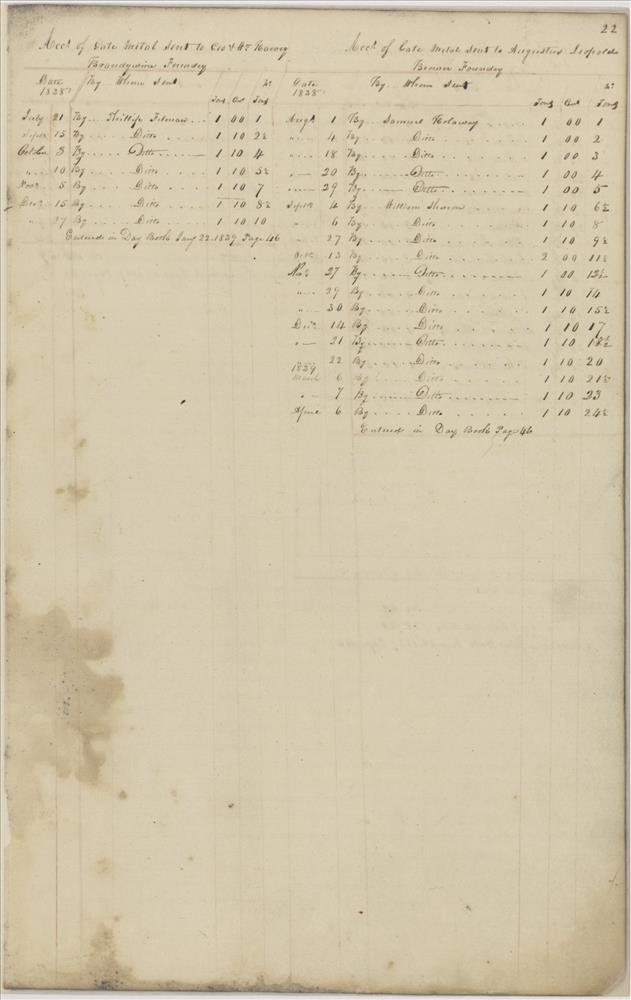 22
Acct of Cate Metal Sent to Geo & Wm
Brandywine Foundry
Date 1838 By Whom Sent Tons Cwt Tons
July 21 By Phillip Filman 1 00 1
Sept 15 By Ditto 1 10 2½
October 8 By Ditto 1 10 4
" 10 By Ditto 1 10 5½
Novr 5 By Ditto 1 10 7
Decr 15 By Ditto 1 10 8½
" 27 By Ditto 1 10 10
Entered in Day Book Jany 22 1839 Page 46
Acct of Cate Metal Sent to Augustus Leopolds
Brown Foundry
Date 1838 By Whom Sent Tons Cwt Tons
Augt 1 By Samuel Holaway 1 00 1
" 4 By Ditto 1 00 2
" 18 By Ditto 1 00 3
" 20 By Ditto 1 00 4
" 29 By Ditto 1 00 5
Septr 4 By William 1 10 6½
" 6 By Ditto 1 10 8
" 27 By Ditto 1 10 9½
Octr 13 By Ditto 2 00 11½
Novr 27 By Ditto 1 00 12½
" 29 By Ditto 1 10 14
" 30 By Ditto 1 10 15½
Decr 14 By Ditto 1 10 17
" 21 By Ditto 1 10 18½
22 By Ditto 1 10 20
1839
March 6 By Ditto 1 10 21½
" 7 By Ditto 1 10 23
April 6 By Ditto 1 10 24½
Entered in Day Book Page 46